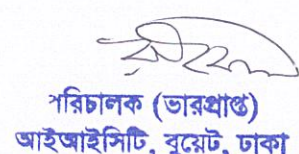 পরিচালক (ভারপ্রাপ্ত)
আইআইসিটি, বুয়েট, ঢাকা